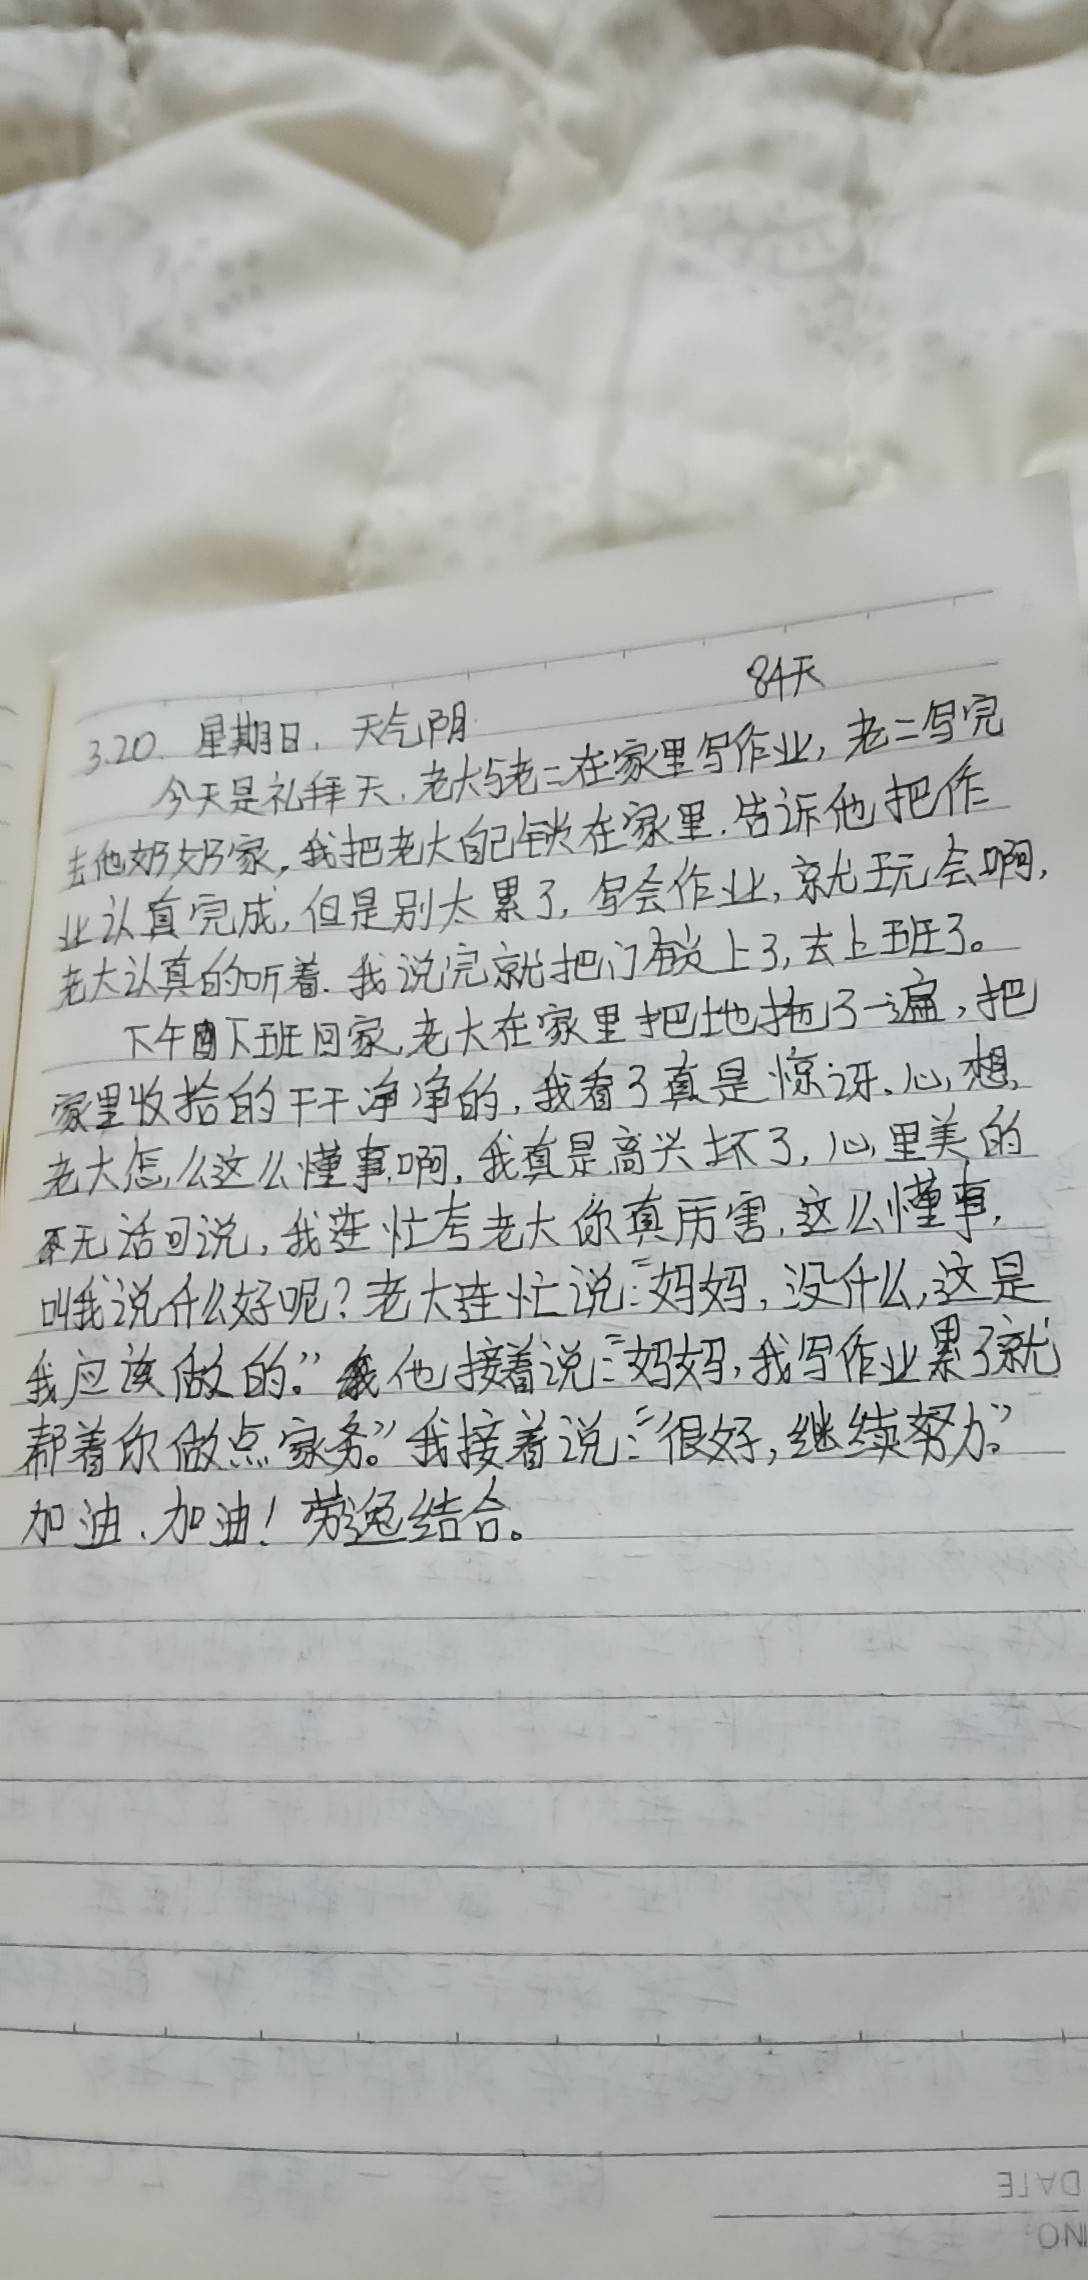 84天
3.20. 星期日. 天气阴.
今天是礼拜天.老大与老二在家里写作业,老二写完
去他奶奶家,我把老大自己锁在家里.告诉他把作
业认真完成,但是别太累了,写会作业,就玩会啊,
老大认真的听着.我说完就把门锁上了,去上班了。
下午下班回家,老大在家里把地拖了一遍,把
家里收拾的干干净净的,我看了真是惊讶.心想,
老大怎么这么懂事啊,我真是高兴坏了,心里美的
无话可说,我连忙夸老大你真厉害,这么懂事,
叫我说什么好呢?老大连忙说:“妈妈,没什么,这是
我应该做的。”他接着说:“妈妈,我写作业累了就
帮着你做点家务。”我接着说:“很好,继续努力。”
加油.加油!劳逸结合。
DATE
NO: